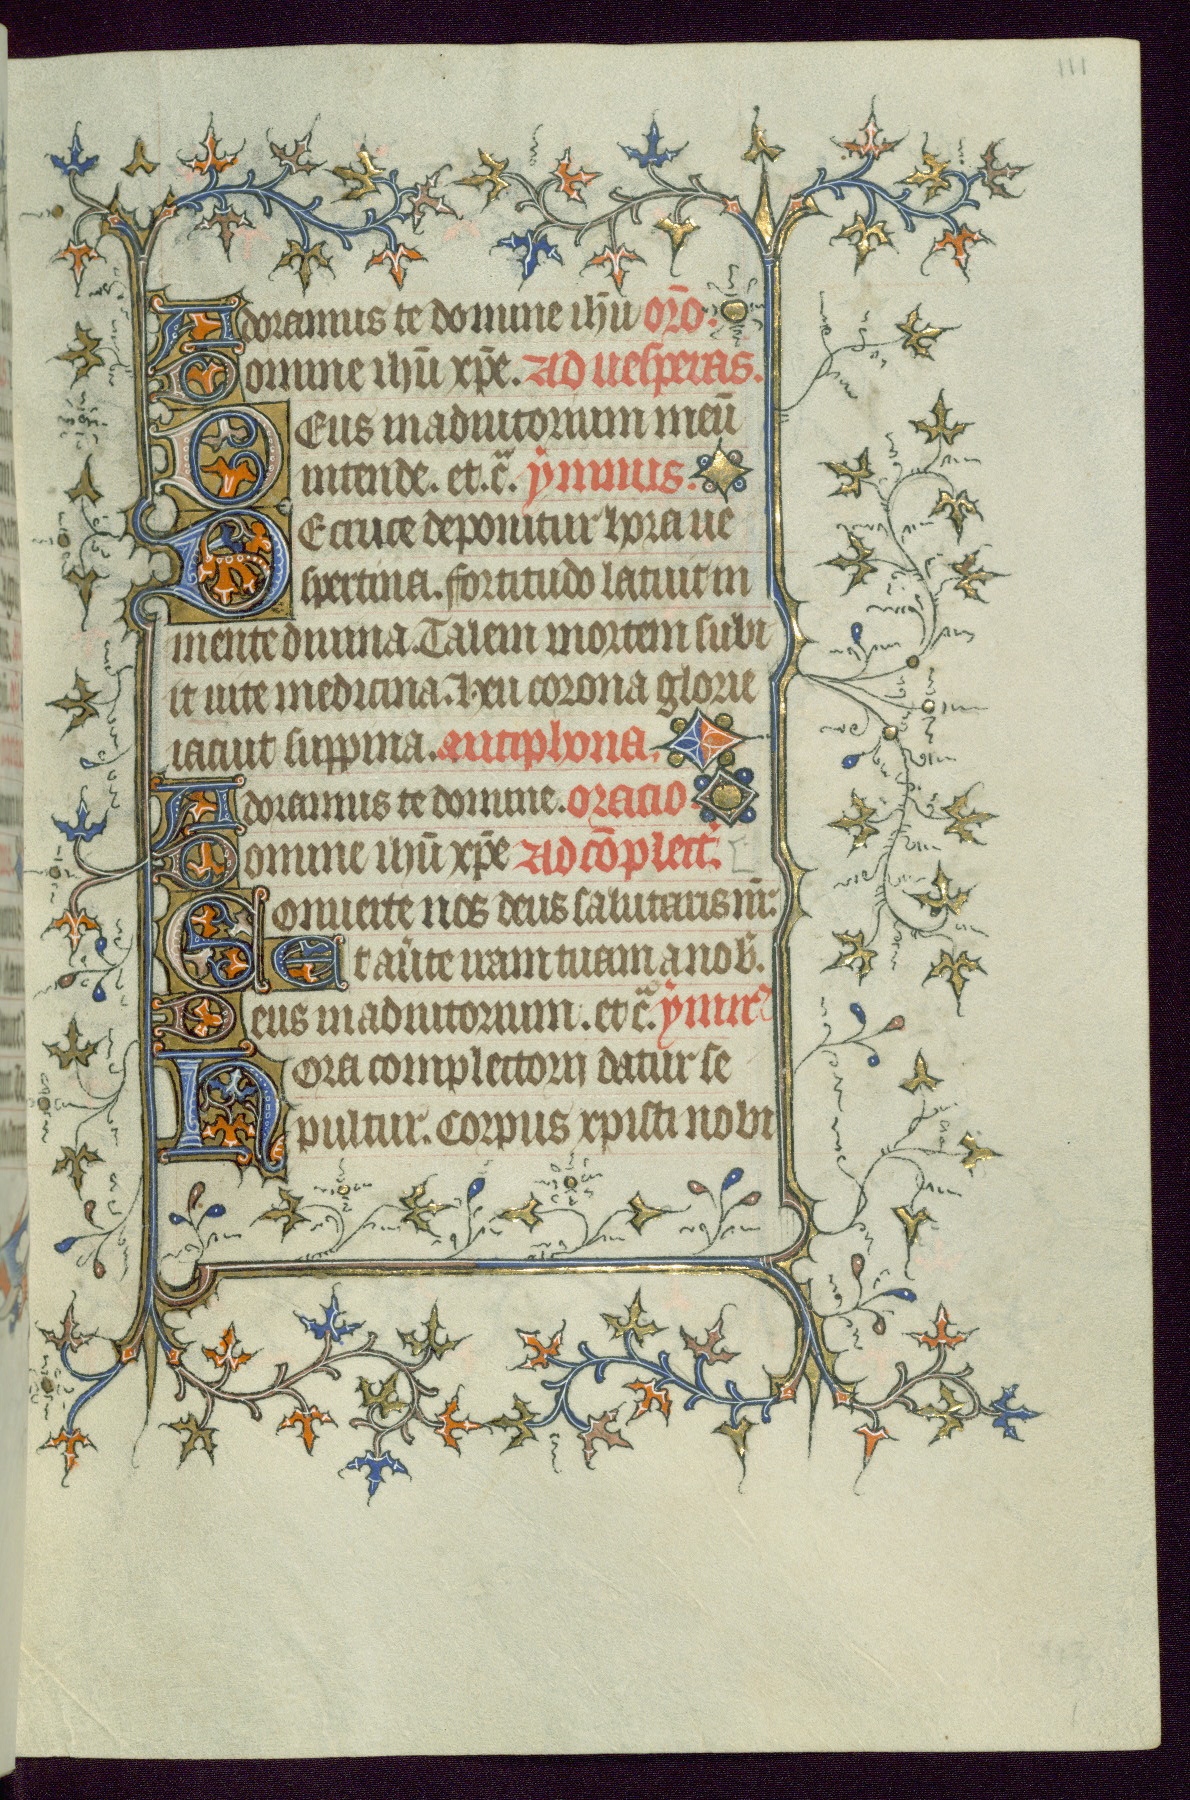 111
Adoramus te domine ih̄u or̄o.
Domine ih̄u xp̄e. Ad uesperas.
Deus in adiutorium meū
intende. et.c̄. ymnus.
De cruce deponitur hora ue
spertina. fortitudo latuit in
mente diuina. Talem mortem subi
it uite medicina. Heu corona glorie
iacuit suppina. antiphona.
Adoramus te domine. oratio.
Domine ih̄u xp̄e Ad cōplect.
Conuerte nos deus salutaris nr̄.
Et aūte iram tuam a nob̄.
Deus in adiutorium. et c̄.
Hora completorij datur se
pultur. corpus xpisti nobi